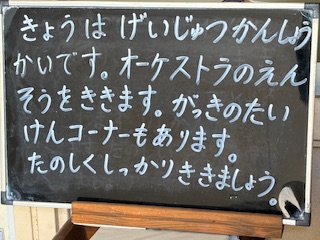 きょうは げいじゅつかんしょう
かいです。オーケストラのえん
そうをききます。がっきのたい
けんコーナーもあります。
たのしくしっかりききましょう。